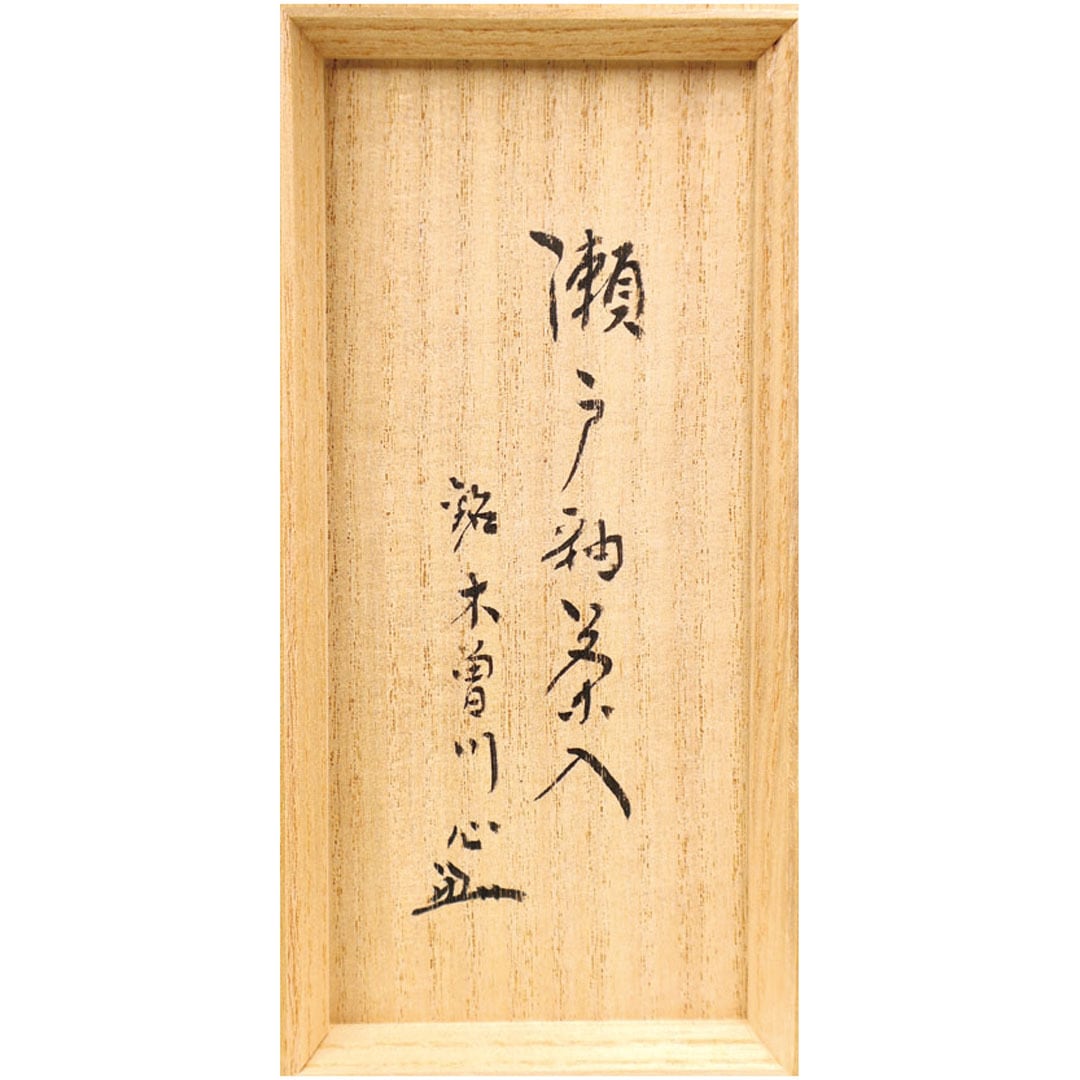 瀬戸釉茶入
銘木曽川 心